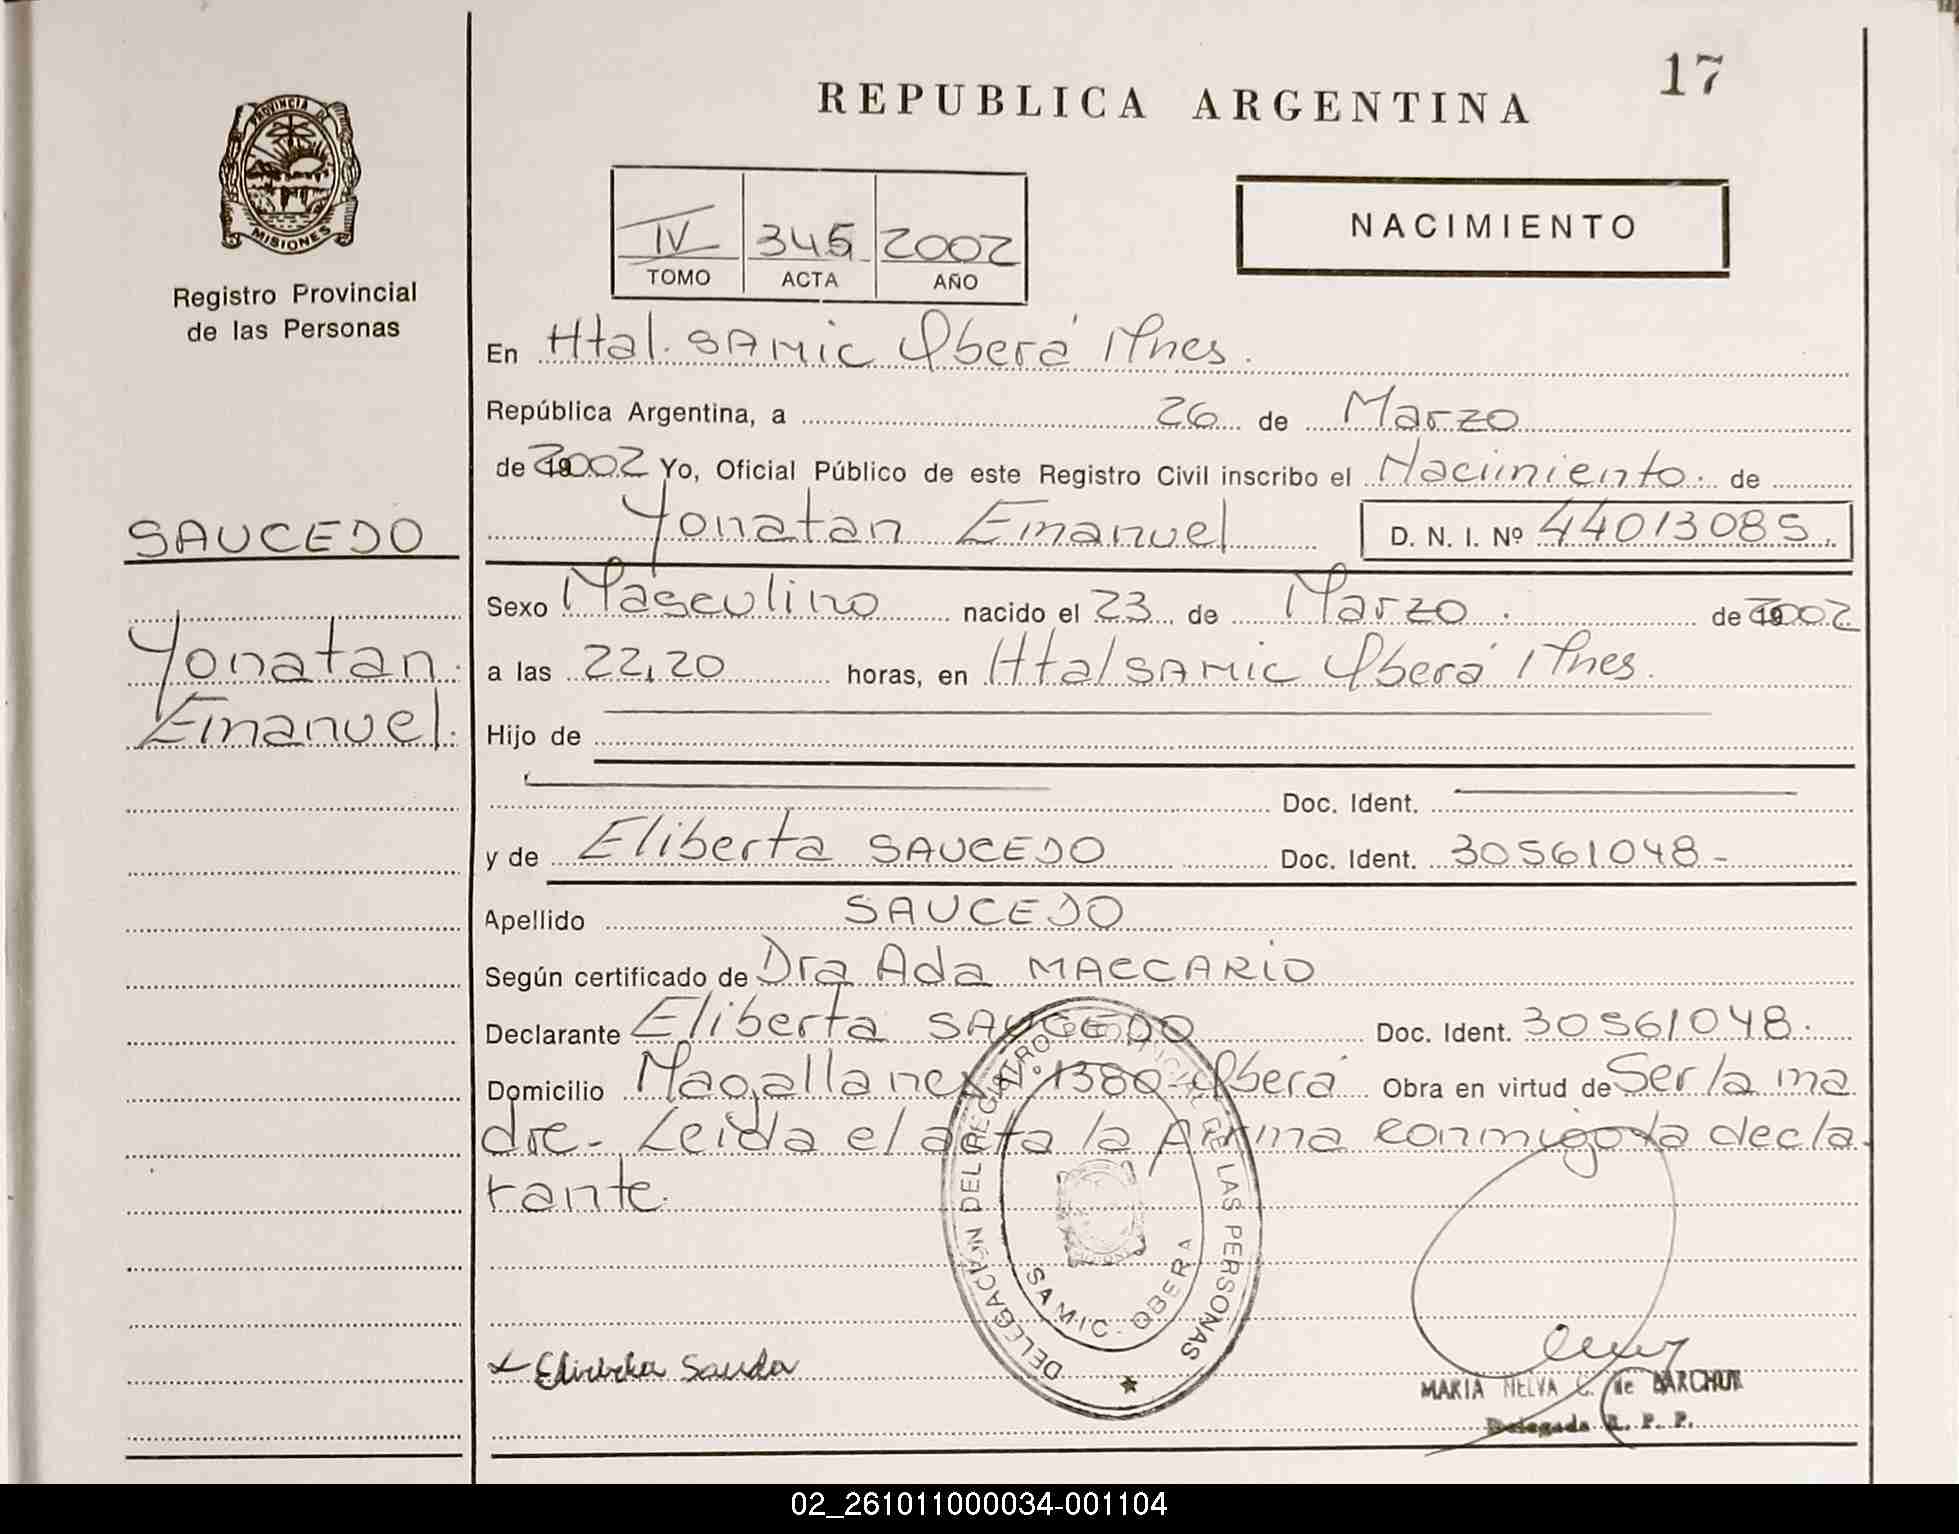 17
REPUBLICA ARGENTINA
PROVINCIA DE
MISIONES
Registro Provincial
de las Personas
IV 345 2002
TOMO ACTA AÑO
NACIMIENTO
En Htal. SAMIC Oberá Mnes.
República Argentina, a 26 de Marzo
de 2002 Yo, Oficial Público de este Registro Civil inscribo el Nacimiento. de
SAUCEDO
Yonatan Emanuel D. N. I. Nº 44013085.
Sexo Masculino nacido el 23 de Marzo. de 2002
Yonatan
Emanuel.
a las 22,20 horas, en Htal SAMIC Oberá Mnes.
Hijo de
Doc. Ident.
y de Eliberta SAUCEDO Doc. Ident. 30561048-
Apellido SAUCEDO
Según certificado de Dra Ada MACCARIO
Declarante Eliberta SAUCEDO Doc. Ident. 30561048.
Domicilio Magallanes Nº 1380-Oberá Obra en virtud de Ser la ma
dre- Leida el acta la firma conmigo la decla
rante.
DELEGACION DEL REGISTRO PROVINCIAL DE LAS PERSONAS
SAMIC. OBERA
MARIA NELVA C. de BARCHUK
Delegada R. P. P.
02_261011000034-001104